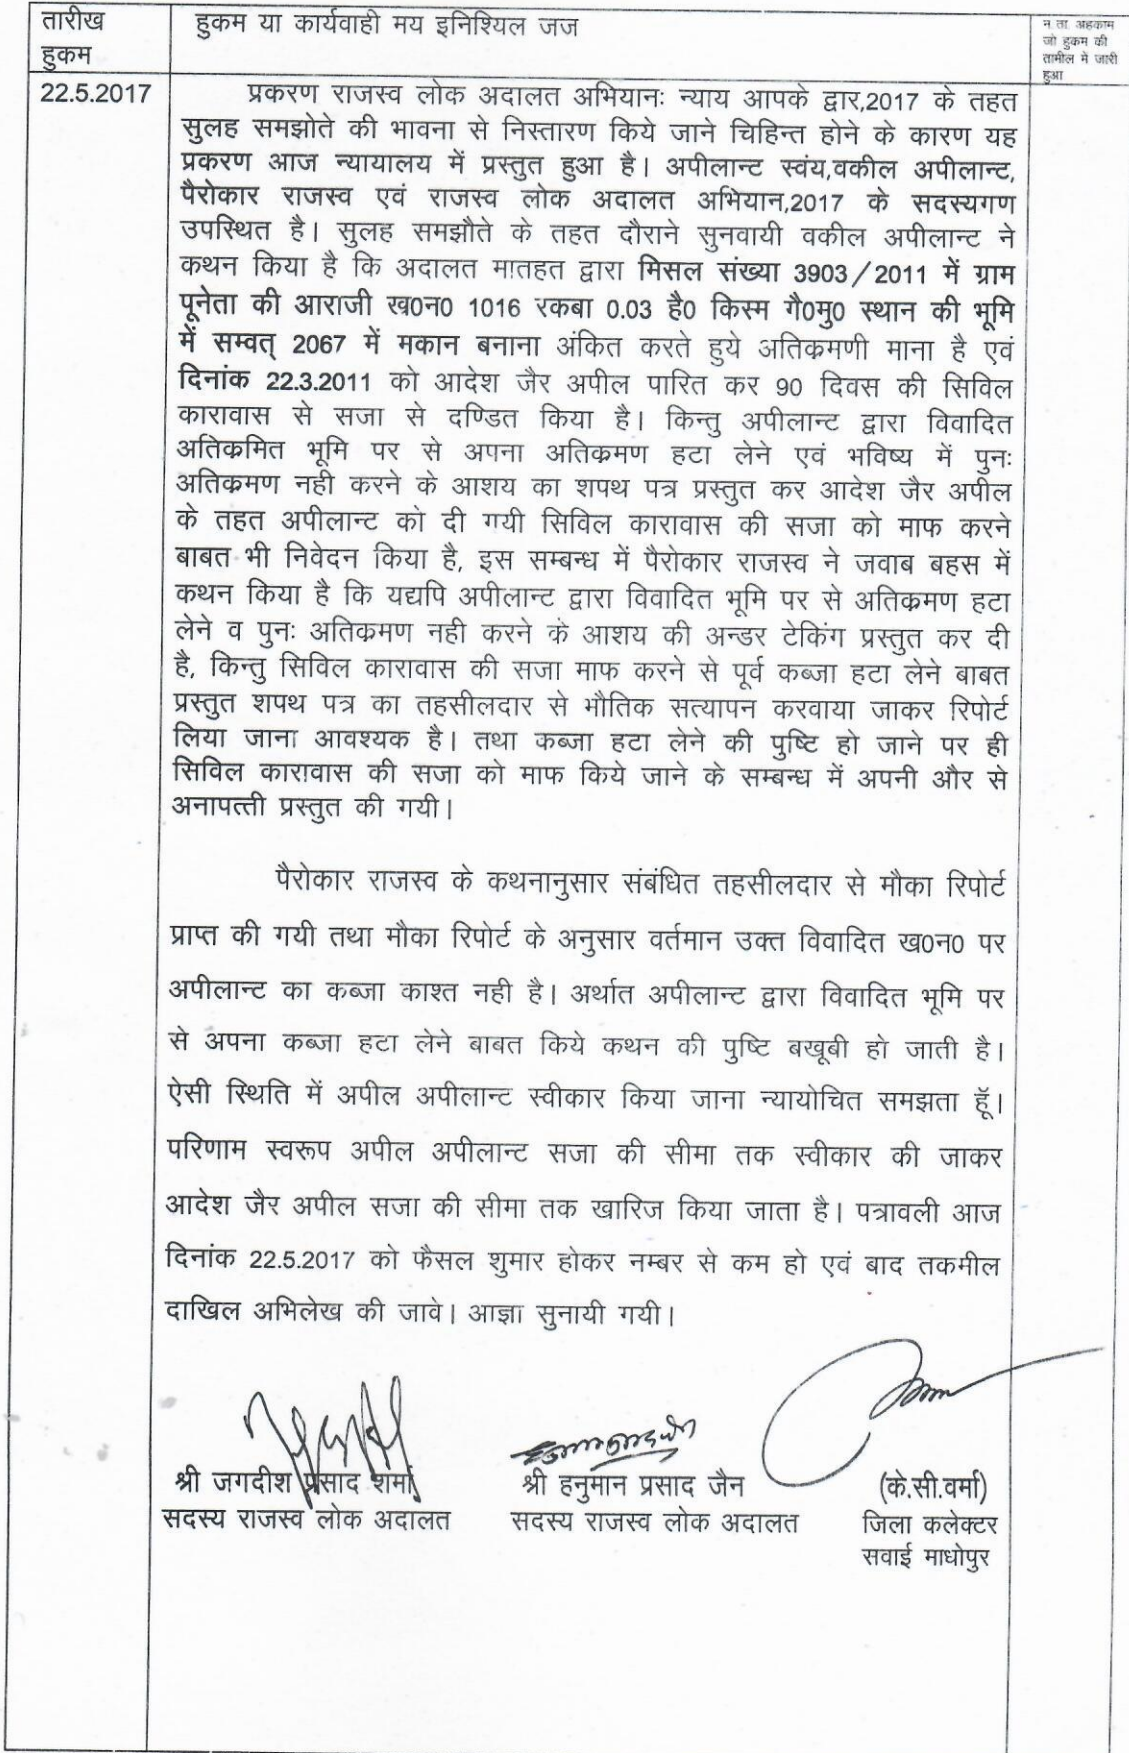 तारीख
हुकम
हुकम या कार्यवाही मय इनिश्यिल जज
न.ता. अहकाम
जो हुकम की
तामील मे जारी
हुआ
22.5.2017
प्रकरण राजस्व लोक अदालत अभियानः न्याय आपके द्वार,2017 के तहत
सुलह समझोते की भावना से निस्तारण किये जाने चिहिन्त होने के कारण यह
प्रकरण आज न्यायालय में प्रस्तुत हुआ है। अपीलान्ट स्वंय,वकील अपीलान्ट,
पैरोकार राजस्व एवं राजस्व लोक अदालत अभियान,2017 के सदस्यगण
उपस्थित है। सुलह समझौते के तहत दौराने सुनवायी वकील अपीलान्ट ने
कथन किया है कि अदालत मातहत द्वारा मिसल संख्या 3903/2011 में ग्राम
पूनेता की आराजी ख0न0 1016 रकबा 0.03 है0 किस्म गै0मु0 स्थान की भूमि
में सम्वत् 2067 में मकान बनाना अंकित करते हुये अतिकमणी माना है एवं
दिनांक 22.3.2011 को आदेश जैर अपील पारित कर 90 दिवस की सिविल
कारावास से सजा से दण्डित किया है। किन्तु अपीलान्ट द्वारा विवादित
अतिकमित भूमि पर से अपना अतिकमण हटा लेने एवं भविष्य में पुनः
अतिकमण नही करने के आशय का शपथ पत्र प्रस्तुत कर आदेश जैर अपील
के तहत अपीलान्ट को दी गयी सिविल कारावास की सजा को माफ करने
बाबत भी निवेदन किया है, इस सम्बन्ध में पैरोकार राजस्व ने जवाब बहस में
कथन किया है कि यद्यपि अपीलान्ट द्वारा विवादित भूमि पर से अतिकमण हटा
लेने व पुनः अतिकमण नही करने के आशय की अन्डर टेकिंग प्रस्तुत कर दी
है, किन्तु सिविल कारावास की सजा माफ करने से पूर्व कब्जा हटा लेने बाबत
प्रस्तुत शपथ पत्र का तहसीलदार से भौतिक सत्यापन करवाया जाकर रिपोर्ट
लिया जाना आवश्यक है। तथा कब्जा हटा लेने की पुष्टि हो जाने पर ही
सिविल कारावास की सजा को माफ किये जाने के सम्बन्ध में अपनी और से
अनापत्ती प्रस्तुत की गयी।
पैरोकार राजस्व के कथनानुसार संबंधित तहसीलदार से मौका रिपोर्ट
प्राप्त की गयी तथा मौका रिपोर्ट के अनुसार वर्तमान उक्त विवादित ख0न0 पर
अपीलान्ट का कब्जा काश्त नही है। अर्थात अपीलान्ट द्वारा विवादित भूमि पर
से अपना कब्जा हटा लेने बाबत किये कथन की पुष्टि बखूबी हो जाती है।
ऐसी स्थिति में अपील अपीलान्ट स्वीकार किया जाना न्यायोचित समझता हूॅ।
परिणाम स्वरूप अपील अपीलान्ट सजा की सीमा तक स्वीकार की जाकर
आदेश जैर अपील सजा की सीमा तक खारिज किया जाता है। पत्रावली आज
दिनांक 22.5.2017 को फैसल शुमार होकर नम्बर से कम हो एवं बाद तकमील
दाखिल अभिलेख की जावे। आज्ञा सुनायी गयी।
श्री जगदीश प्रसाद शर्मा
सदस्य राजस्व लोक अदालत
श्री हनुमान प्रसाद जैन
सदस्य राजस्व लोक अदालत
(के.सी.वर्मा)
जिला कलेक्टर
सवाई माधोपुर